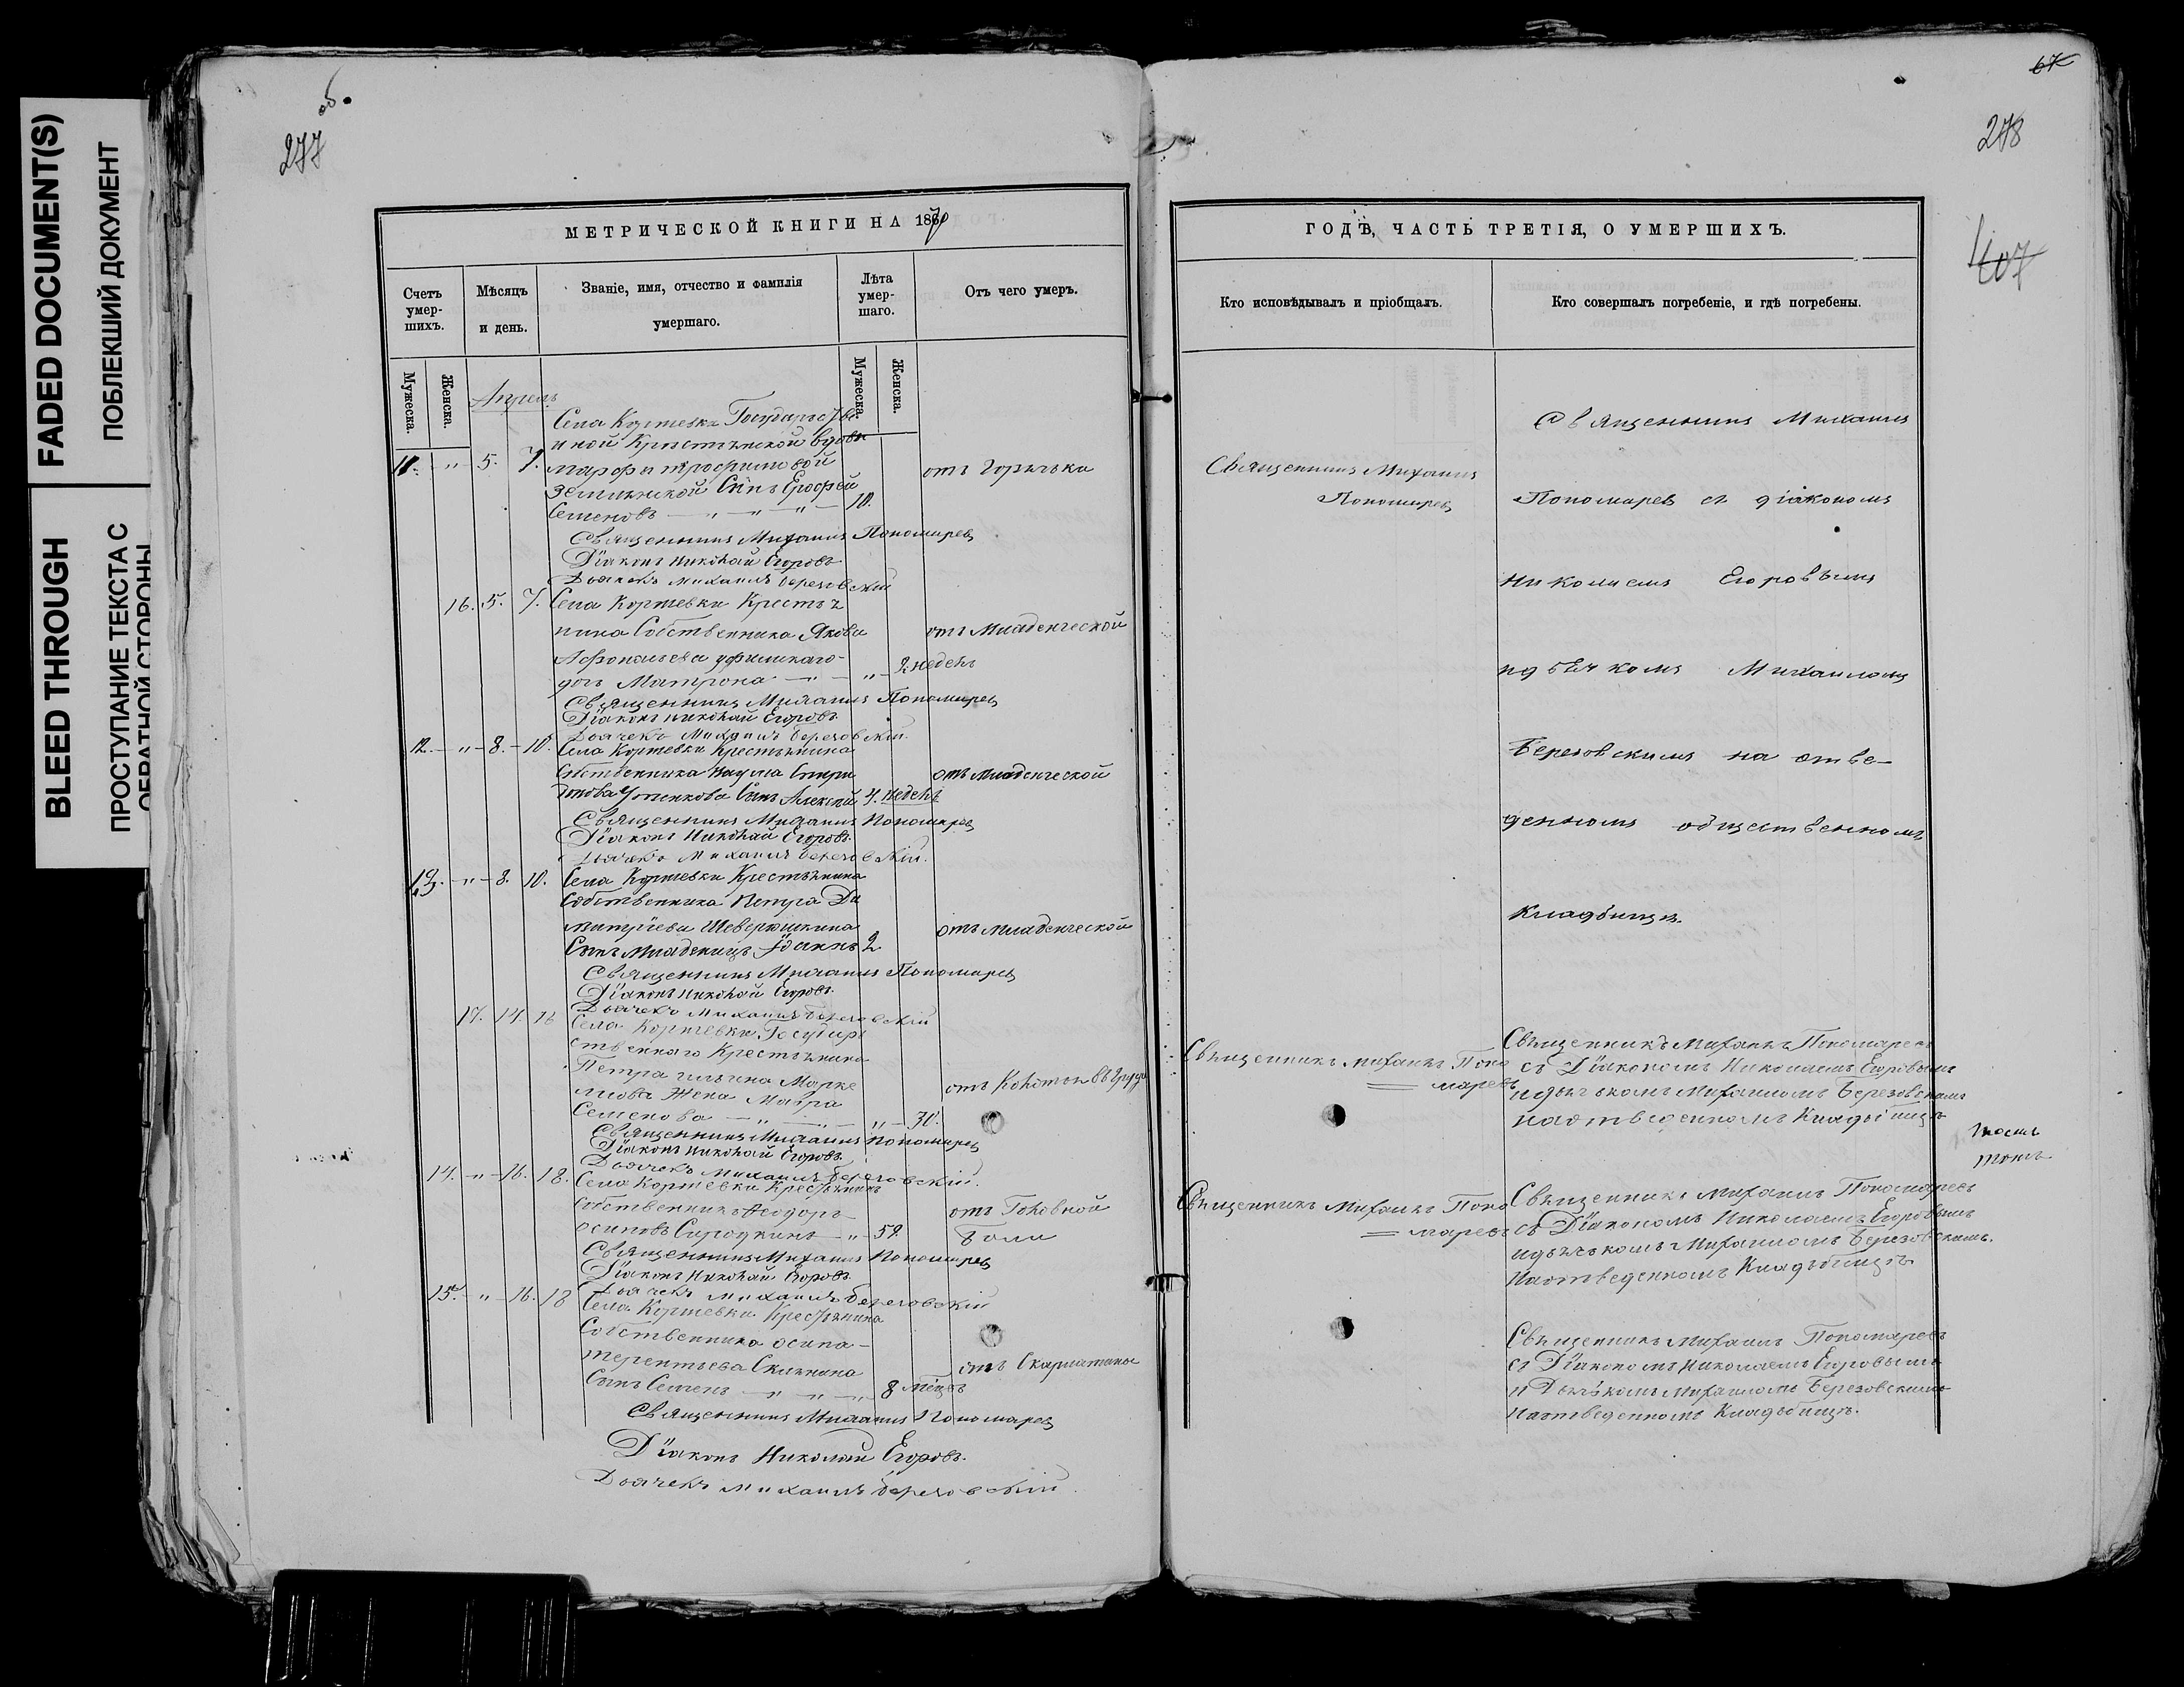 FADED DOCUMENT(S)
ПОБЛЕКШИЙ ДОКУМЕНТ
BLEED THROUGH
ПРОСТУПАНИЕ ТЕКСТА С
ОБРАТНОЙ СТОРОНЫ
об.
277
МЕТРИЧЕСКОЙ КНИГИ НА 1870
Счетъ умер-шихъ.
Мѣсяцъ и день.
Званіе, имя, отчество и фамилія умершаго.
Лѣта умер-шаго.
Отъ чего умеръ.
Мужеска.
Женска.
Мужеска.
Женска.
Апрель
Села Коржевки Государстве
нной Крестьянской вдовы
11. — „ — 5. 7. Марфы Трофимовой
отъ Горячьки
Сынъ Ерофей
Семеновъ — „ — „ — „ — 10.
Священникъ Михаилъ Пономарев
Діаконъ Николай Егоровъ
Дьячекъ Михаилъ Березовскій
16. 5. 7. Села Коржевки Кресть я
нина Собственника Якова
отъ Младенческой
дочь Матрона — „ — „ — 2. недель
Священникъ Михаилъ Пономарев
Діаконъ Николай Егоровъ.
Дьячекъ Михаилъ Березовскій.
12. — „ — 8. — 10. Села Коржевки Крестьянина
Собственника Наума Спири
отъ Младенческой
Сынъ Алексей 4. недель
Священникъ Михаилъ Пономарев
Діаконъ Николай Егоровъ.
Дьячекъ Михаилъ Березовскій.
13. — „ — 8. 10. Села Коржевки Крестьянина
Собственника Петра Ди
митріева Шеверюшкина
отъ Младенческой
Сынъ Младенецъ Іоаннъ 2
Священникъ Михаилъ Пономарев
Діаконъ Николай Егоровъ.
Дьячекъ Михаилъ Березовскій
17. 14. 16 Села Коржевки Государ
ственнаго Крестьянина
Петра Ильина Марке
лова Жена Мавра
отъ Колотья въ Груди
Семенова — „ — „ — 70.
Священникъ Михаилъ Пономарев
Діаконъ Николай Егоровъ.
Дьячекъ Михаилъ Березовскій.
14. — „ — 16. 18. Села Коржевки Крестьянинъ
Собственникъ Феодоръ
отъ Головной
Осиповъ Сироткинъ — „ — 59.
Боли
Священникъ Михаилъ Пономарев
Діаконъ Николай Егоровъ.
Дьячекъ Михаилъ Березовскій
15. — „ — 16. 18 Села Коржевки Крестьянина
Собственника Осипа
Терентьева
отъ Скарлатины
Сынъ Семенъ — „ — „ — „ 8 мецъвъ
Священникъ Михаилъ Пономарев
Діаконъ Николай Егоровъ.
Дьячекъ Михаилъ Березовскій.
67
278
407
ГОДѢ, ЧАСТЬ ТРЕТІЯ, О УМЕРШИХЪ.
Кто исповѣдывалъ и пріобщалъ.
Кто совершалъ погребеніе, и гдѣ погребены.
Священникъ Михаилъ
Священникъ Михаилъ
Пономарев
Пономарев съ діакономъ
Николаемъ Егоровымъ
и дьячкомъ Михаиломъ
Березовскимъ на отве-
денномъ общественномъ
Кладбище.
Священникъ Михаилъ Поно
марев
Священникъ Михаилъ Пономаревъ
съ Діакономъ Николаемъ Егоровымъ
и дьячькомъ Михаиломъ Березовскимъ
на отведенномъ Кладбищѣ
Священникъ Михаилъ Поно
маревъ
Священникъ Михаилъ Пономаревъ
съ Діакономъ Николаемъ Егоровымъ
и дьячькомъ Михаиломъ Березовскимъ.
на отведенномъ Кладъбищѣ
Священникъ Михаилъ Пономаревъ
съ Діакономъ Николаемъ Егоровымъ
и Дьячькомъ Михаиломъ Березовскимъ
на отведенномъ Кладъбищѣ.